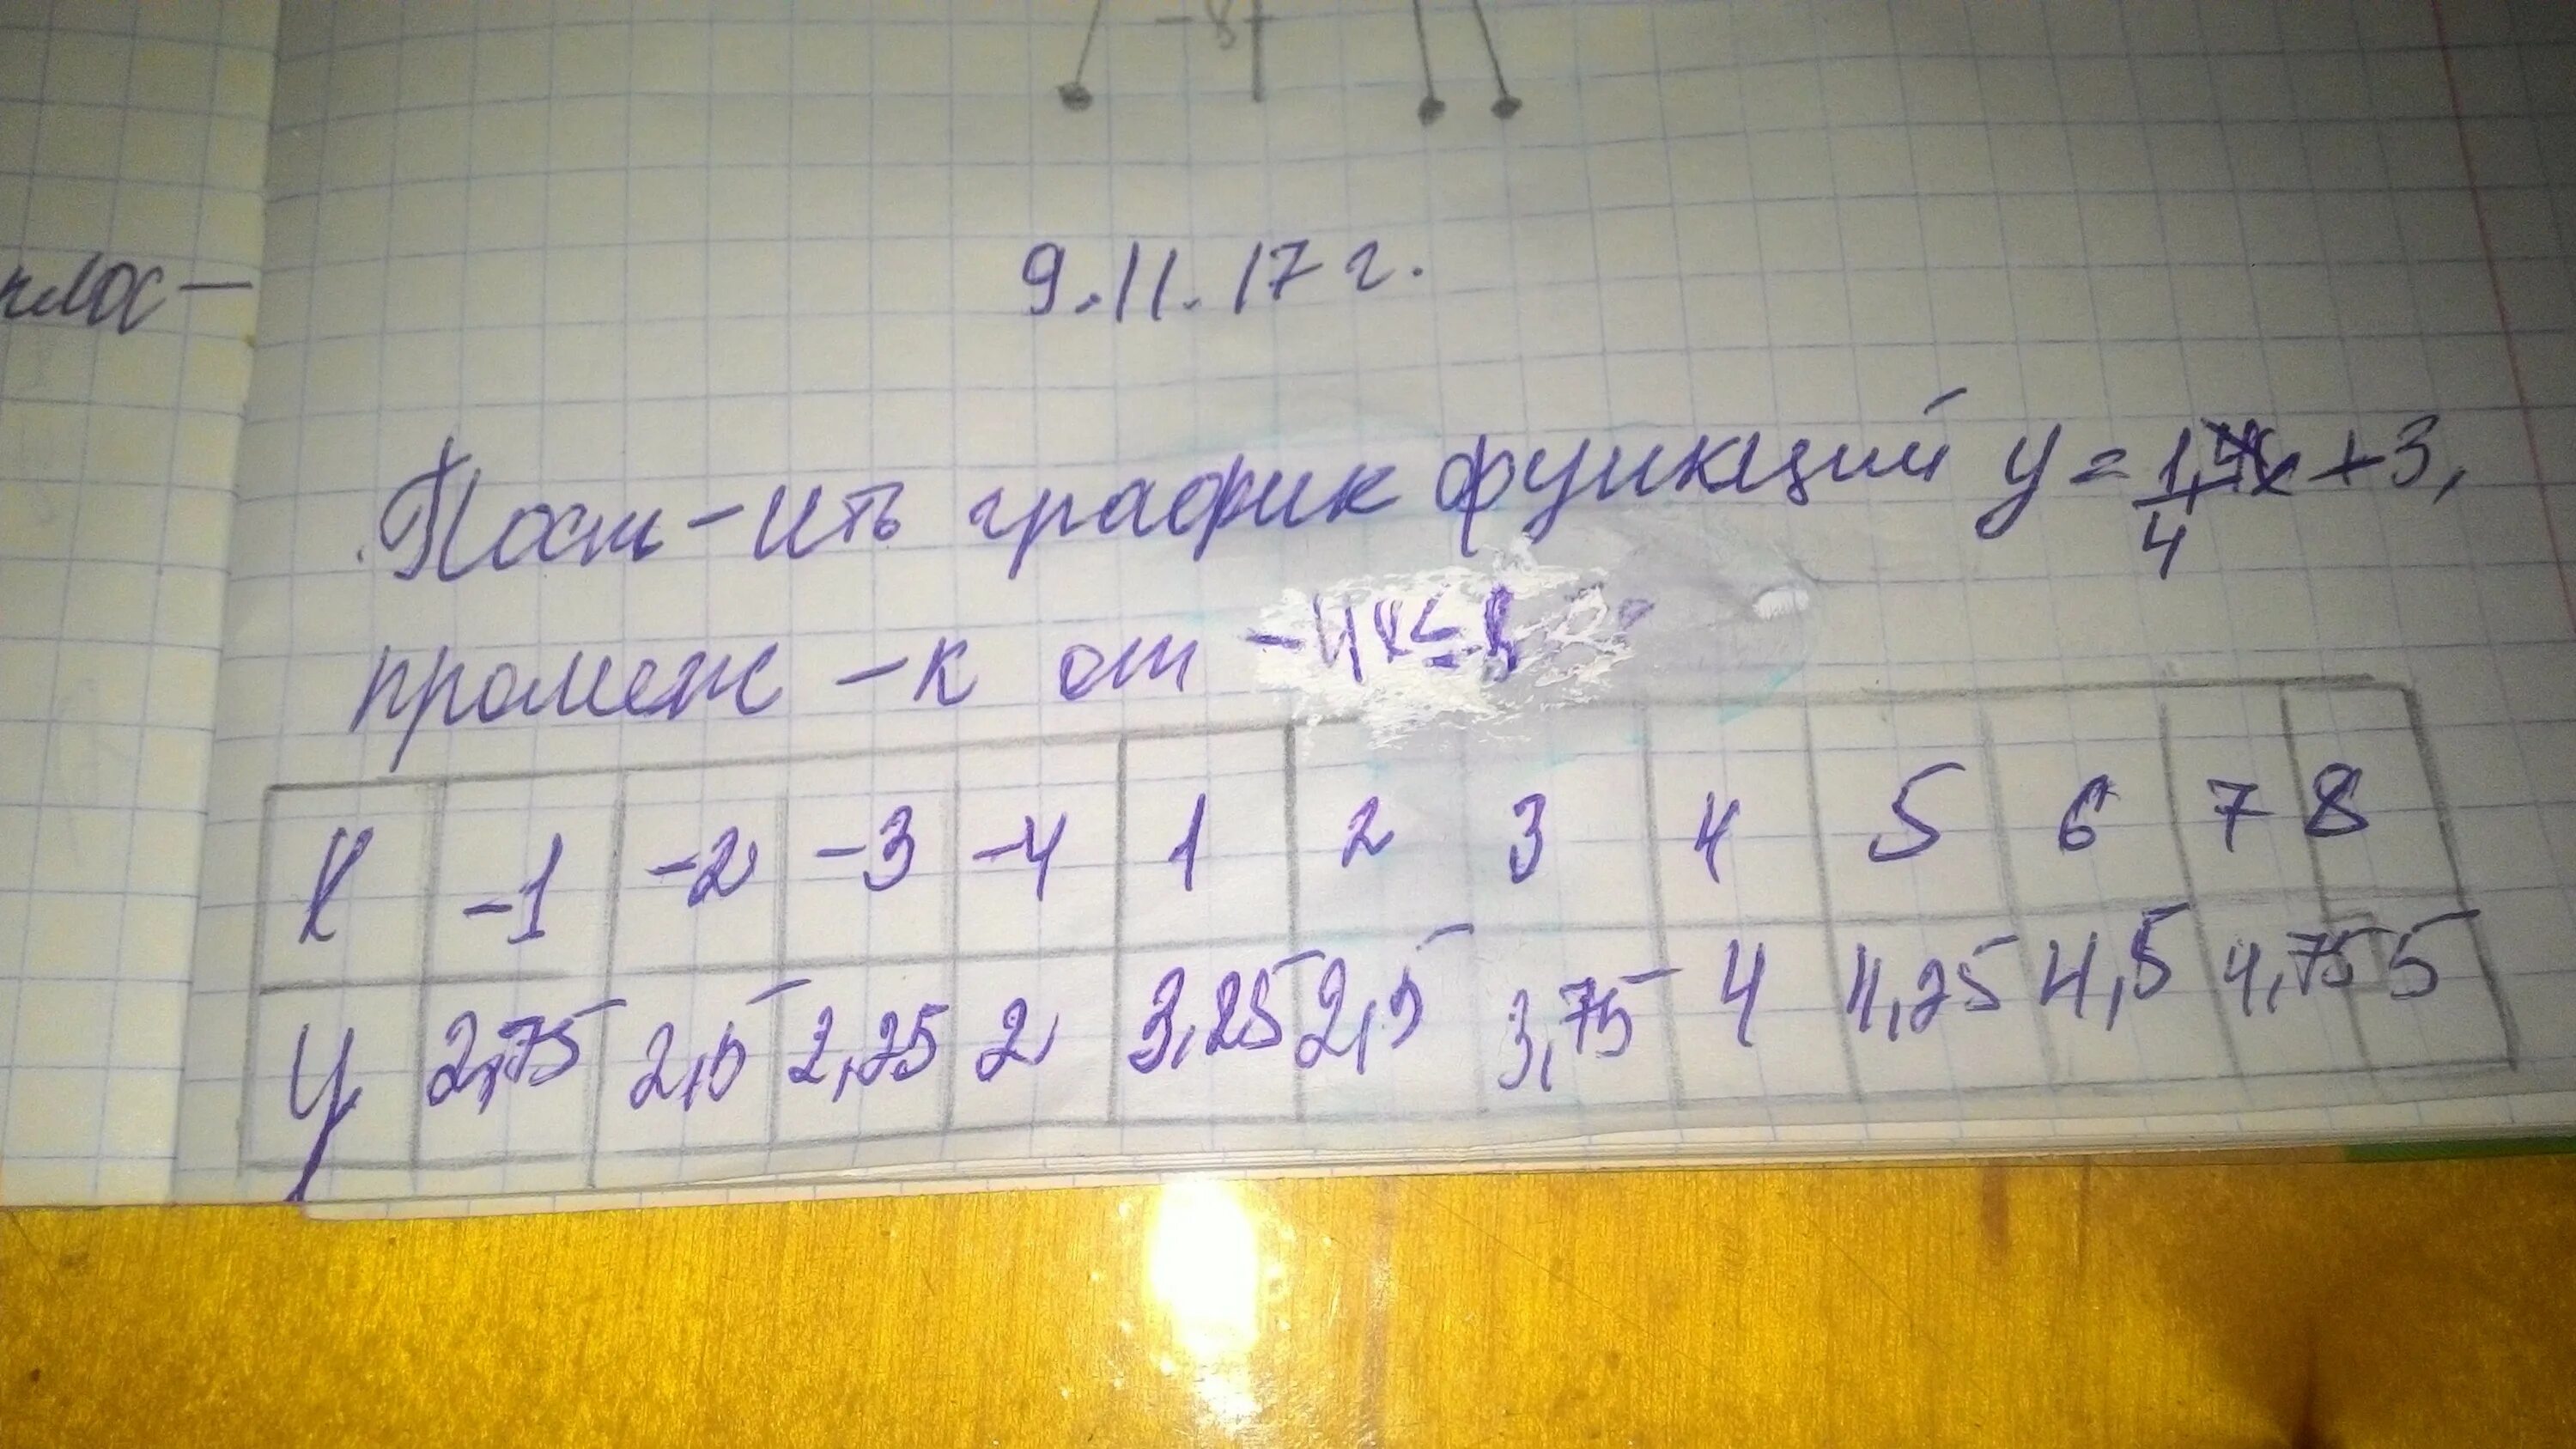 -8
плос-
9.11.17 г.
Пост-ить график функций y = 1/4 x + 3,
промеж-к от -4 x ≤ 8
X -1 -2 -3 -4 1 2 3 4 5 6 7 8
y 2,75 2,5 2,25 2 3,25 2,5 3,75 4 4,25 4,5 4,75 5